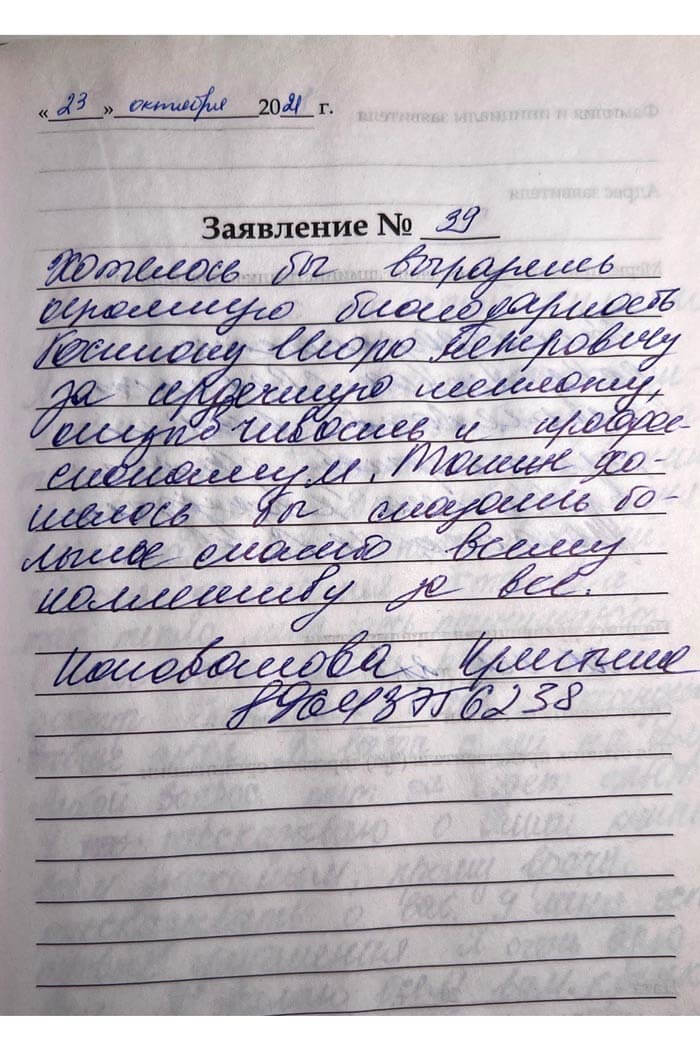 « 23 » октября 2021 г.
Заявление № 39
Хотелось бы выразить
огромную благодарность
Игорю Петровичу
за сердечную теплоту,
отзывчивость и профес-
сионализм. Также хо-
телось бы сказать бо-
льшое спасибо всему
коллективу за всё.
Коновалова Кристина
89643756238